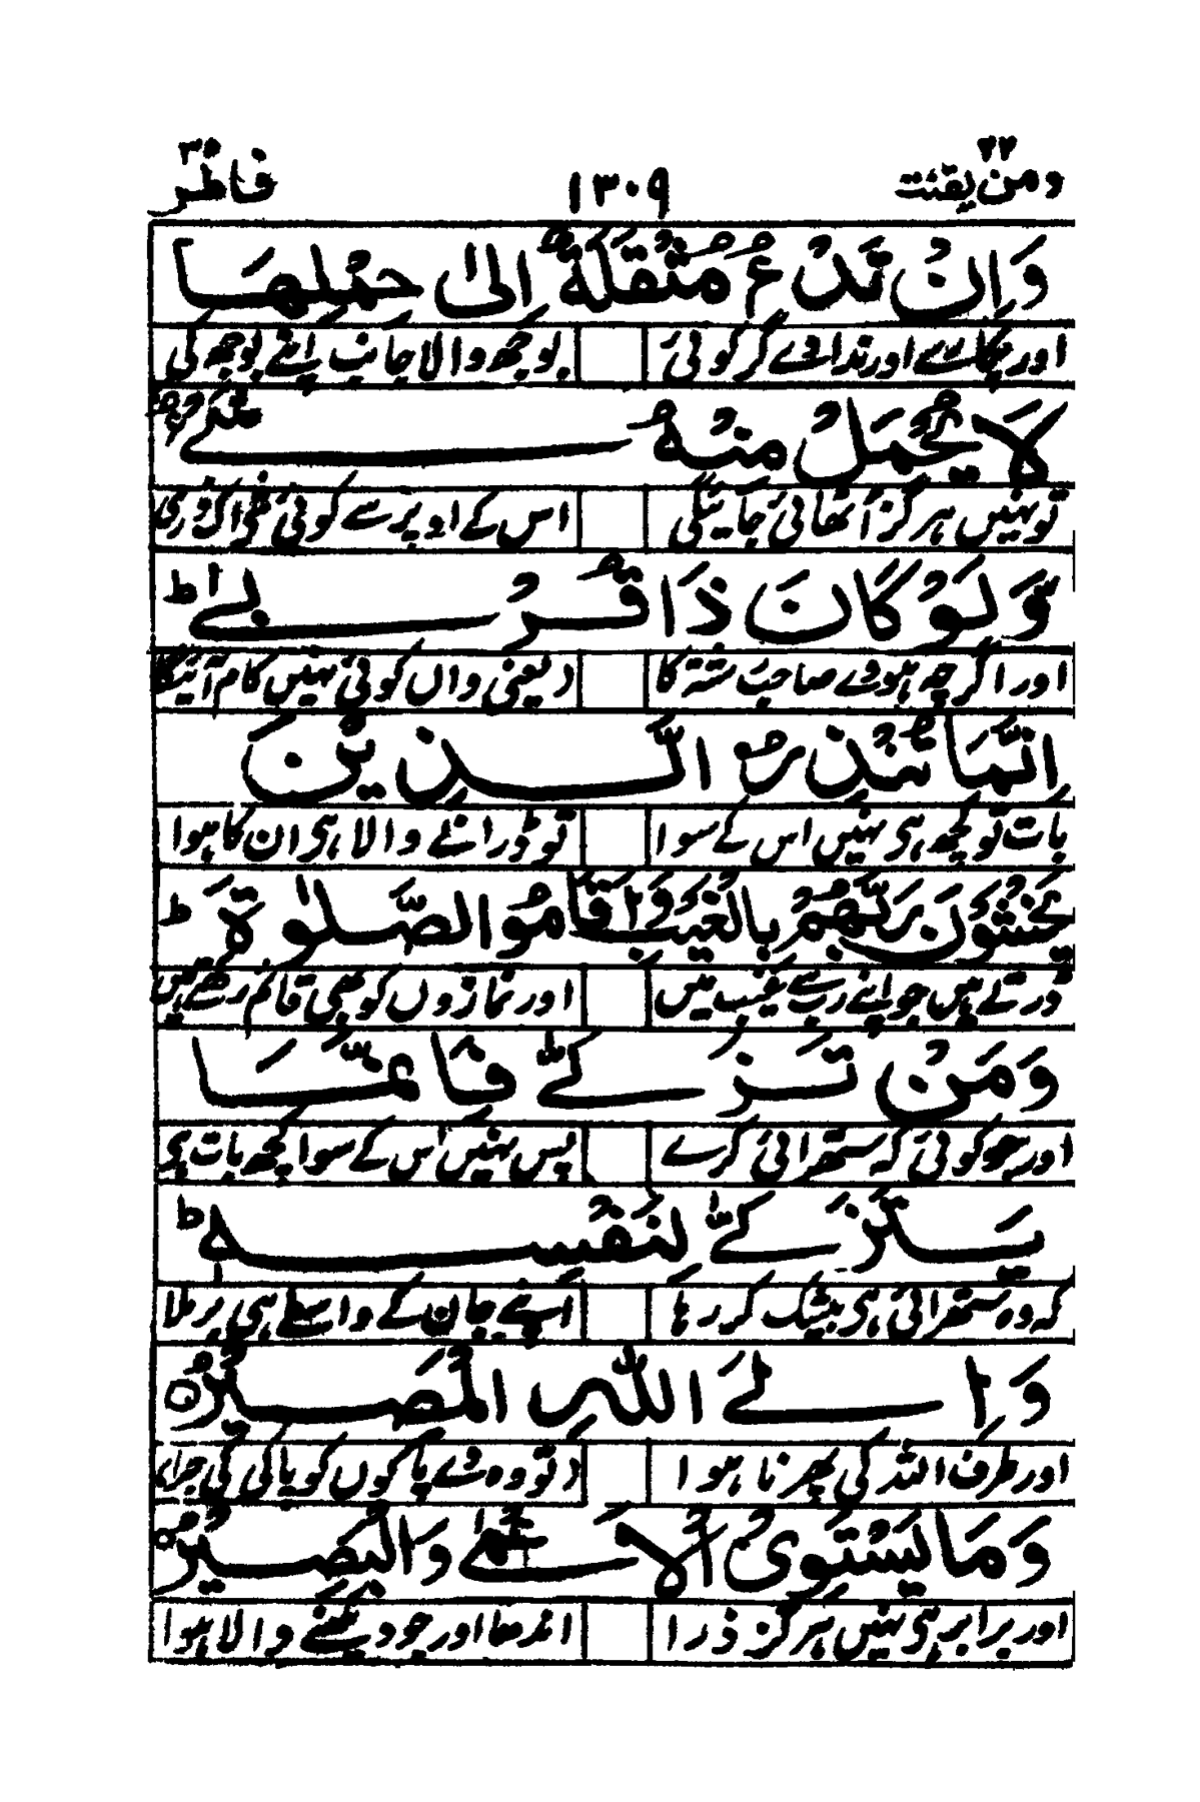 ومن یقنت ٢٢
١٣٠٩
فاطر ٣٥
وَاِنْ تَدْعُ مُثْقَلَةٌ اِلٰی حِمْلِهَا
اور پکارے اور ندا دے گر کوئی بوجھ والا جانب اپنے بوجھ کی
لَا یُحْمَلْ مِنْهُ شَیْءٌ
تو نہیں ہرگز اٹھائی جائیگی اس کے اوپر سے کوئی
وَّلَوْ كَانَ ذَا قُرْبٰی ؕ
اور اگرچہ ہووے صاحب رشتہ کا (یعنی واں کوئی نہیں کام آئیگا
اِنَّمَا تُنْذِرُ الَّذِیْنَ
بات تو کچھ ہی نہیں اس کے سوا تو ڈرانے والا ہی ان کا ہوا
یَخْشَوْنَ رَبَّهُمْ بِالْغَیْبِ وَاَقَامُوا الصَّلٰوةَ ؕ
ڈرتے ہیں جو اپنے رب سے غیب میں اور نمازوں کو بھی قائم رکھتے ہیں
وَمَنْ تَزَكّٰی فَاِنَّمَا
اور جو کوئی کہ ستھرائی کرے پس نہیں اس کے سوا کچھ بات ہی
یَتَزَكّٰی لِنَفْسِهٖ ؕ
کہ وہ ستھرائی ہی بیشک کر رہا اپنے جان کے واسطے ہی برملا
وَاِلَی اللّٰهِ الْمَصِیْرُ ۝
اور طرف اللہ کی پھرنا ہوا (تو وہ دے پاکوں کو پاکی کی جزا
وَمَا یَسْتَوِی الْاَعْمٰی وَالْبَصِیْرُ ۝
اور برابر ہی نہیں ہرگز ذرا اندھا اور جو دیکھنے والا ہوا